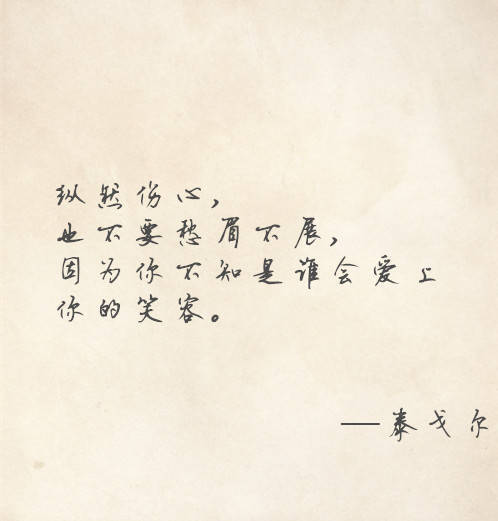 纵然伤心，
也不要愁眉不展，
因为你不知是谁会爱上
你的笑容。
——泰戈尔